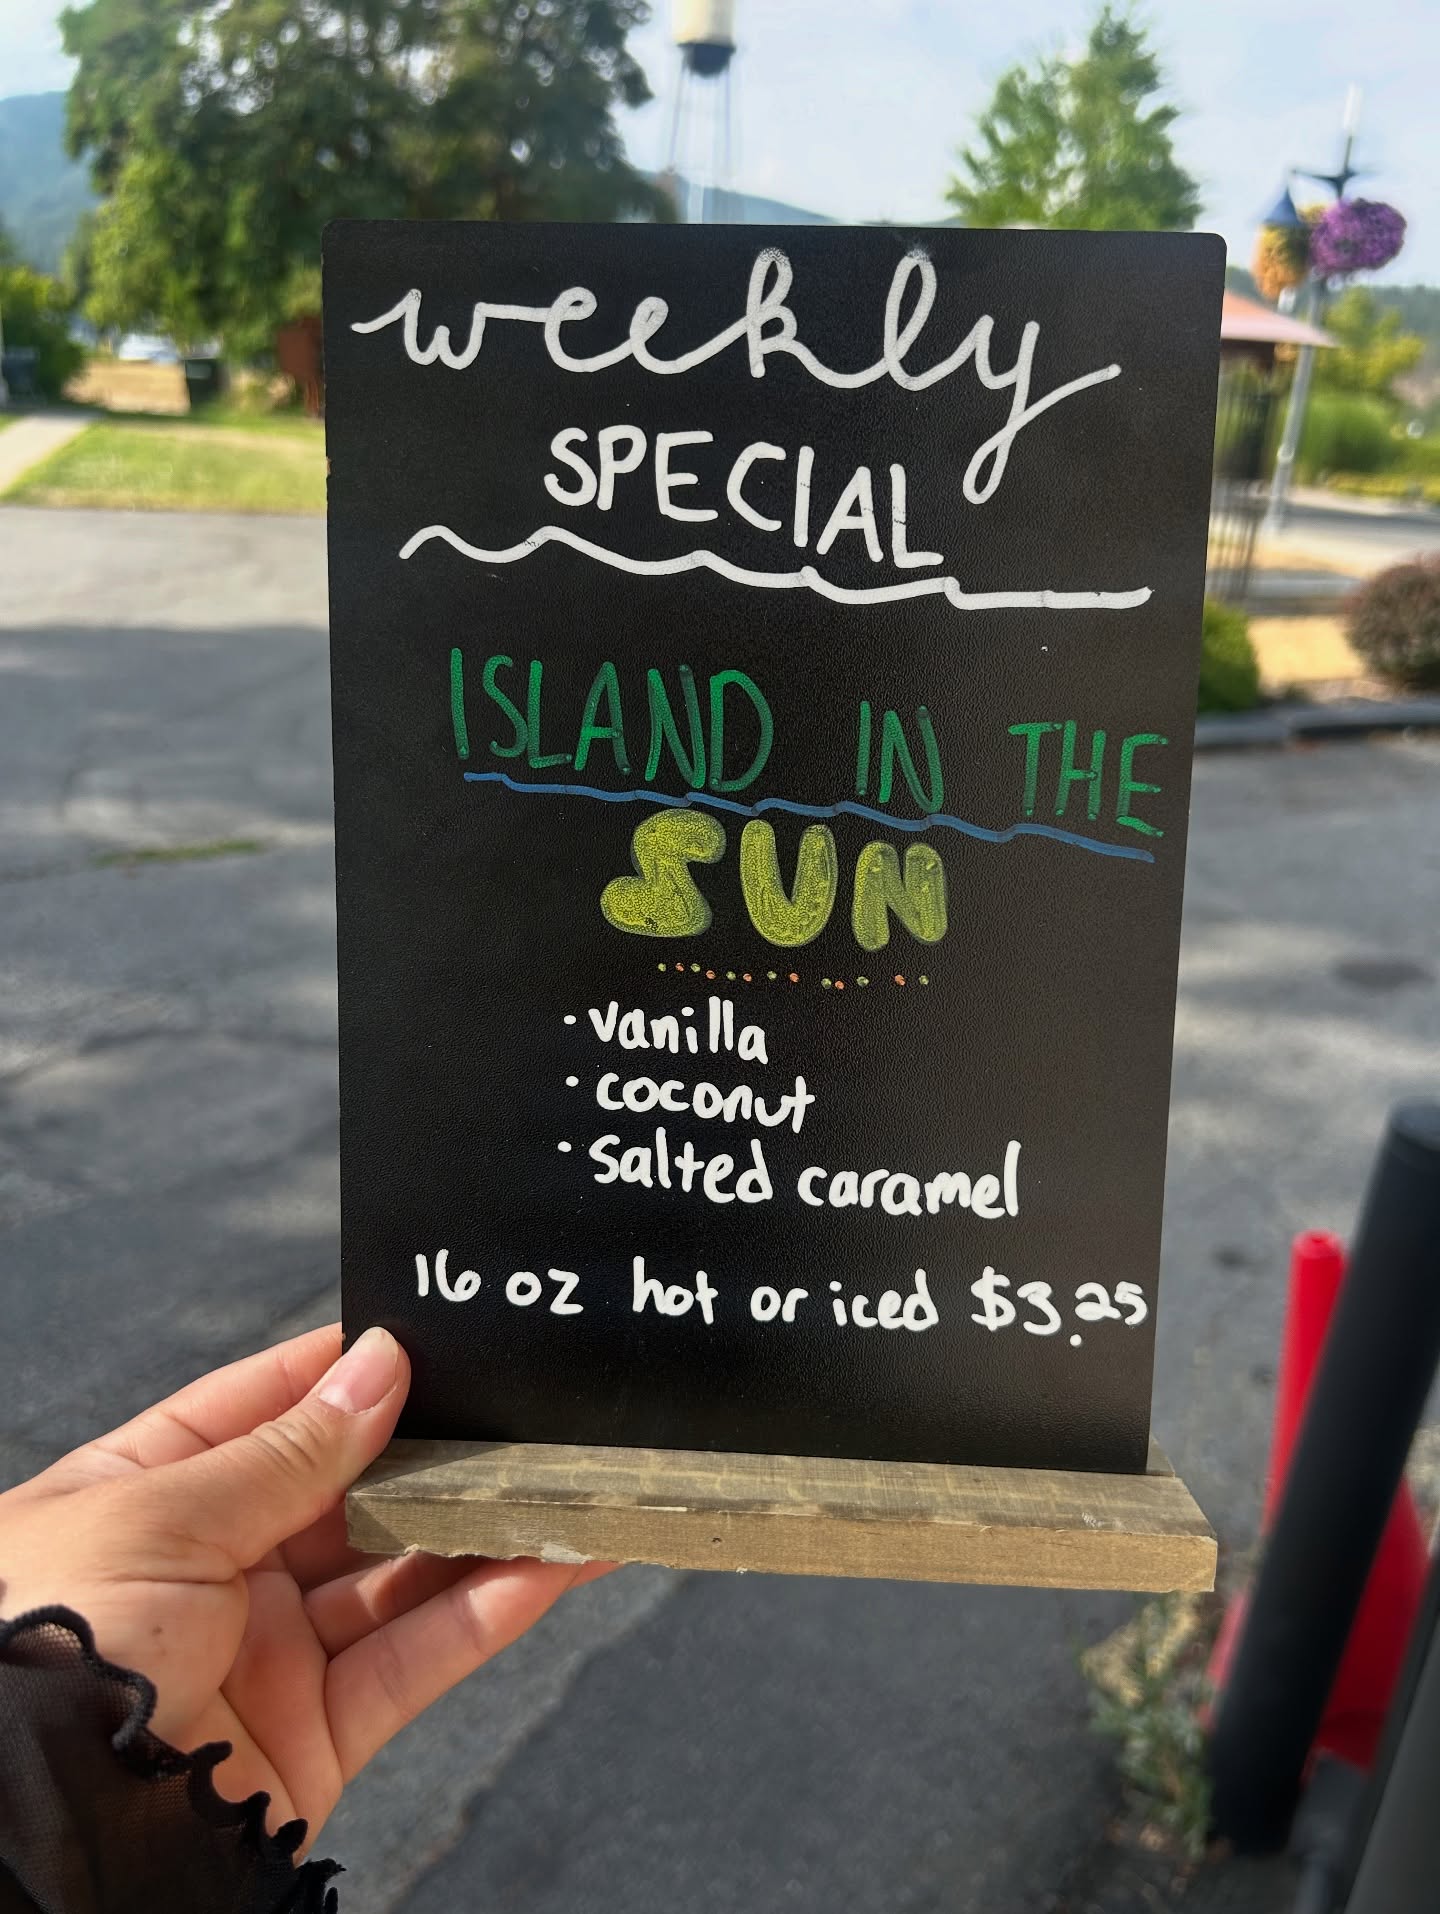 weekly
SPECIAL
ISLAND IN THE
SUN
· vanilla
· coconut
· salted caramel
16 oz hot or iced $3.25